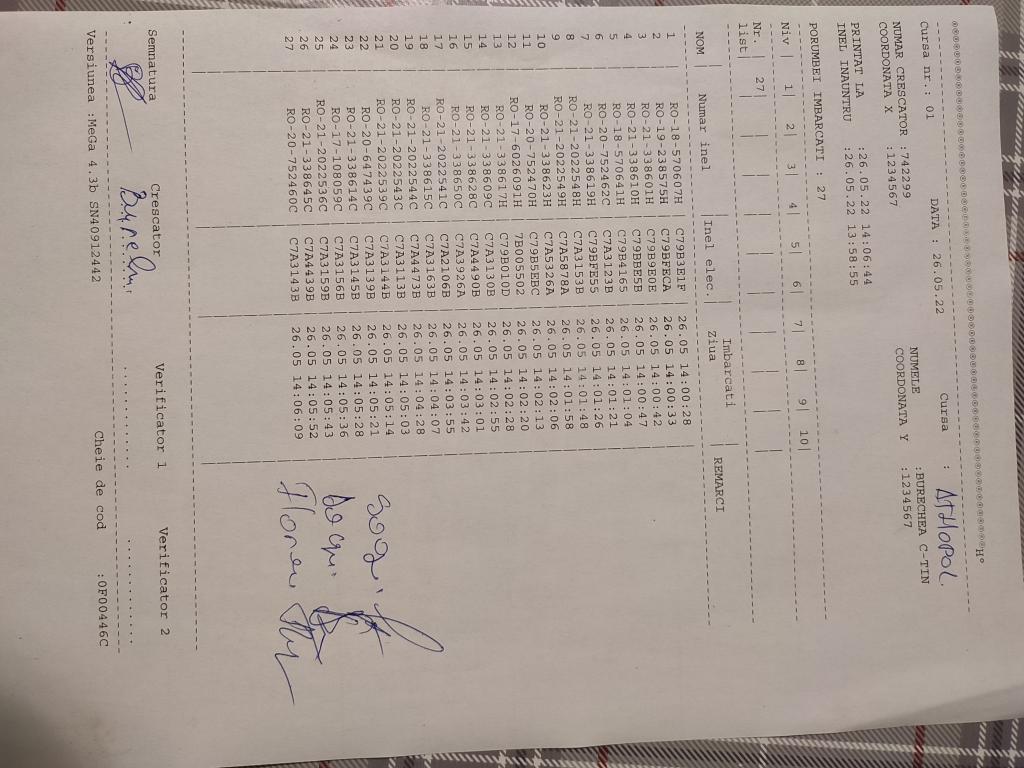 Cursa nr.: 01 DATA : 26.05.22 Cursa : DTHOPOL
NUMAR CRESCATOR :742299 NUMELE :BURECHEA C-TIN
COORDONATA X :1234567 COORDONATA Y :1234567
PRINTAT LA :26.05.22 14:06:44
INEL INAUNTRU :26.05.22 13:58:55
PORUMBEI IMBARCATI : 27
Niv | 1| 2| 3| 4| 5| 6| 7| 8| 9| 10|
Nr. | 27|
list|
NOM| Numar inel |Inel elec.| Imbarcati | REMARCI
Ziua
1 RO-18-570607H C79B3E1F 26.05 14:00:28
2 RO-19-238575H C79BFECA 26.05 14:00:33
3 RO-21-338601H C79B9E0E 26.05 14:00:42
4 RO-21-338610H C79BBE5B 26.05 14:00:47
5 RO-18-570641H C79B4165 26.05 14:01:04
6 RO-20-752462C C7A3123B 26.05 14:01:21
7 RO-21-338619H C79BFE55 26.05 14:01:26
8 RO-21-2022548H C7A3153B 26.05 14:01:48
9 RO-21-2022549H C7A5878A 26.05 14:01:58
10 RO-21-338623H C7A5326A 26.05 14:02:06
11 RO-20-752470H C79B5EBC 26.05 14:02:13
12 RO-17-602691H 7B005502 26.05 14:02:20
13 RO-21-338617H C79B010D 26.05 14:02:28
14 RO-21-338609C C7A3130B 26.05 14:02:55
15 RO-21-338628C C7A4490B 26.05 14:03:01
16 RO-21-338650C C7A3926A 26.05 14:03:42
17 RO-21-2022541C C7A2106B 26.05 14:03:55
18 RO-21-338615C C7A3163B 26.05 14:04:07
19 RO-21-2022544C C7A4473B 26.05 14:04:28
20 RO-21-2022543C C7A3113B 26.05 14:05:03
21 RO-21-2022539C C7A3144B 26.05 14:05:14
22 RO-20-647439C C7A3139B 26.05 14:05:21
23 RO-21-338614C C7A3145B 26.05 14:05:28
24 RO-17-108059C C7A3156B 26.05 14:05:36
25 RO-21-2022536C C7A3159B 26.05 14:05:43
26 RO-21-338645C C7A4439B 26.05 14:05:52
27 RO-20-752460C C7A3143B 26.05 14:06:09
Semnatura Crescator Verificator 1 Verificator 2
Versiunea :MeGa 4.3b SN40912442 Cheie de cod :0F00446C